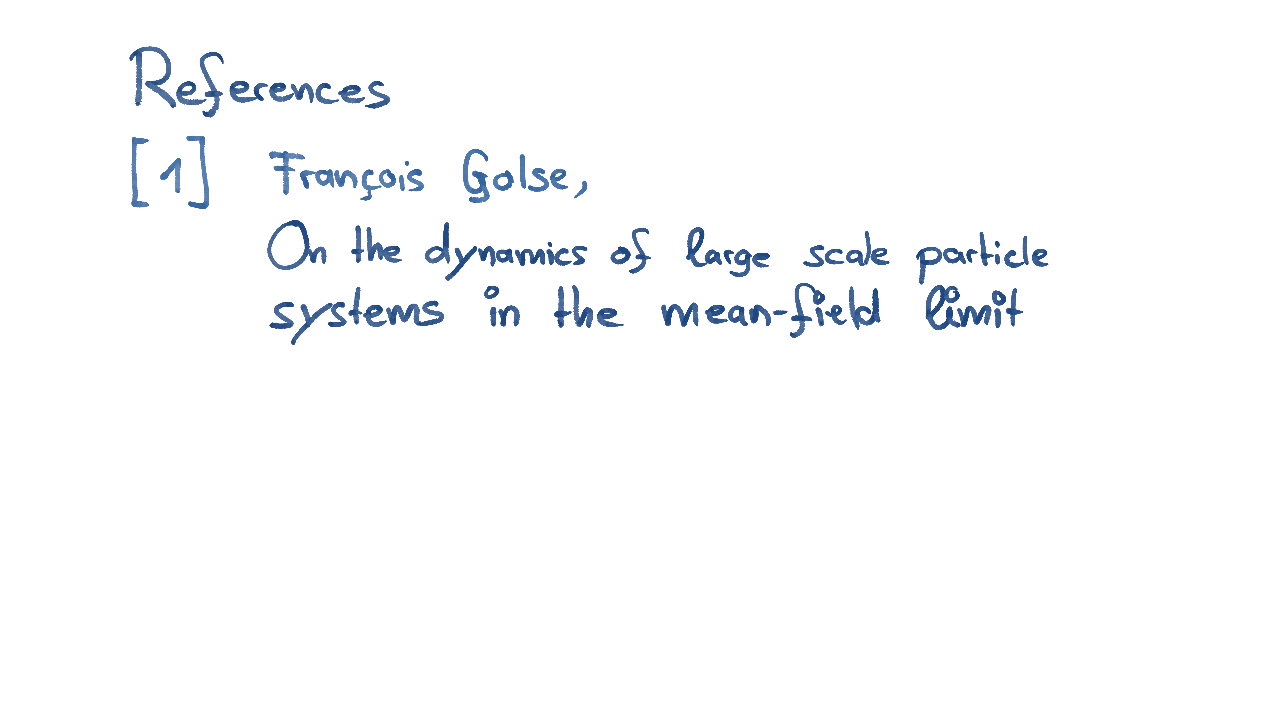 References
[1] François Golse,
On the dynamics of large scale particle
systems in the mean-field limit